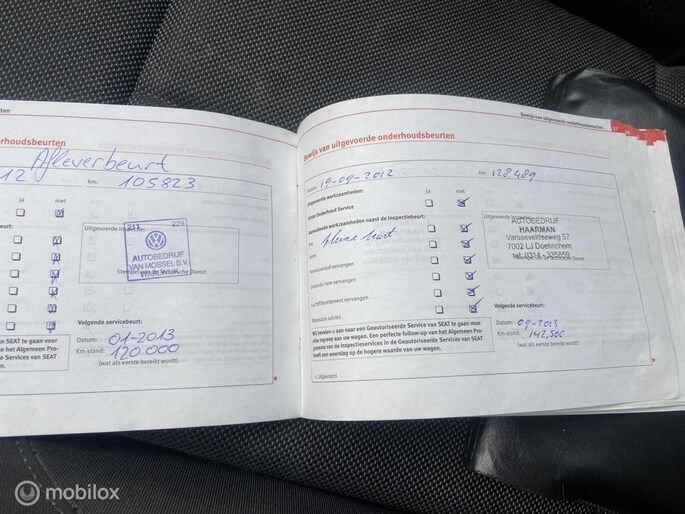 nderhoudsbeurten
Afleverbeurt
12 km: 105823
ja niet
beurt: Uitgevoerde inspectie:
211 223
AUTOBEDRIJF
VAN MOSSEL B.V.
WAALWIJK
Stempel van de Technische Dienst
Volgende servicebeurt:
Datum: 01-2013
Km-stand: 120.000
(wat als eerste bereikt wordt)
Service van SEAT te gaan voor
van het Algemeen Pro-
Services van SEAT
Bewijs van uitgevoerde onderhoudsbeurten
Bewijs van uitgevoerde onderhoudsbeurten
datum: 19-09-2012 km: 128,489
Uitgevoerde werkzaamheden: ja niet
Service
Aanvullende werkzaamheden naast de Inspectiebeurt:
Uitgevoerde inspectie:
AUTOBEDRIJF
HAARMAN
Varsseveldseweg 57
7002 LJ Doetinchem
tel. 0314 - 335859
vervangen
vervangen
Luchtfilterelement vervangen
Reparatie advies
Volgende servicebeurt:
Datum: 09-2013
Km-stand: 142,500
(wat als eerste bereikt wordt)
Wij bevelen u aan naar een Geautoriseerde Service van SEAT te gaan voor
elke ingreep aan uw wagen. Een perfecte follow-up van het Algemeen Pro-
gramma van de Inspectieservices in de Geautoriseerde Services van SEAT
heeft ver een
op de hogere waarde van uw wagen.
mobilox